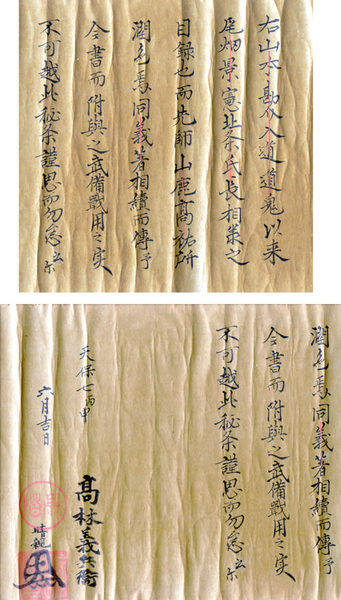 右山本勘介入道道鬼以来
尾畑景憲北条氏長相承之
目録也而先師山鹿高祐所
潤色焉同義著相續而傳予
今書而附與之武備戦用之実
不可越此秘条謹思而勿怠云尓
潤色焉同義著相續而傳予
今書而附與之武備戦用之実
不可越此秘条謹思而勿怠云尓
天保七丙申
六月吉日
髙林義兵衛